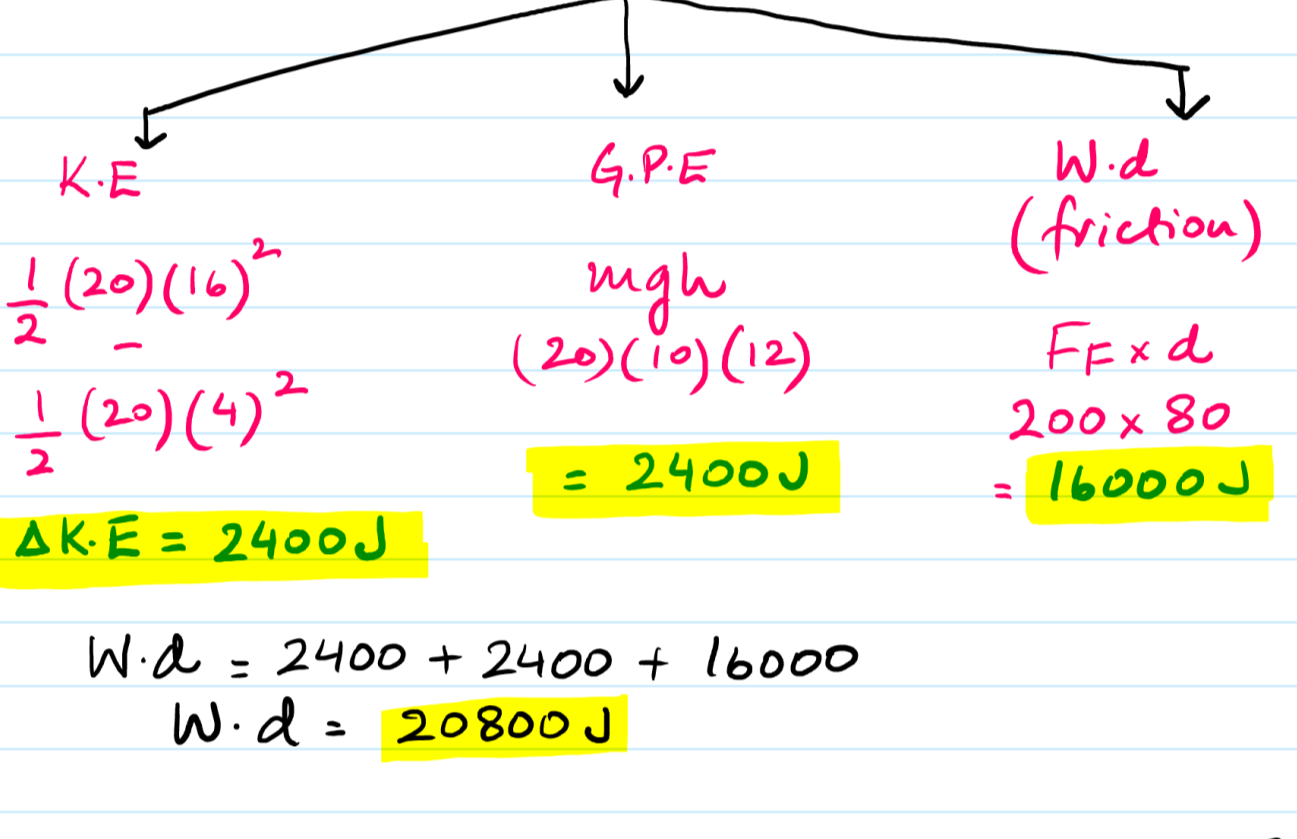 K.E
½(20)(16)²
–
½(20)(4)²
ΔK.E = 2400J
G.P.E
mgh
(20)(10)(12)
= 2400J
W.d
(friction)
FF x d
200 x 80
= 16000J
W.d = 2400 + 2400 + 16000
W.d = 20800J